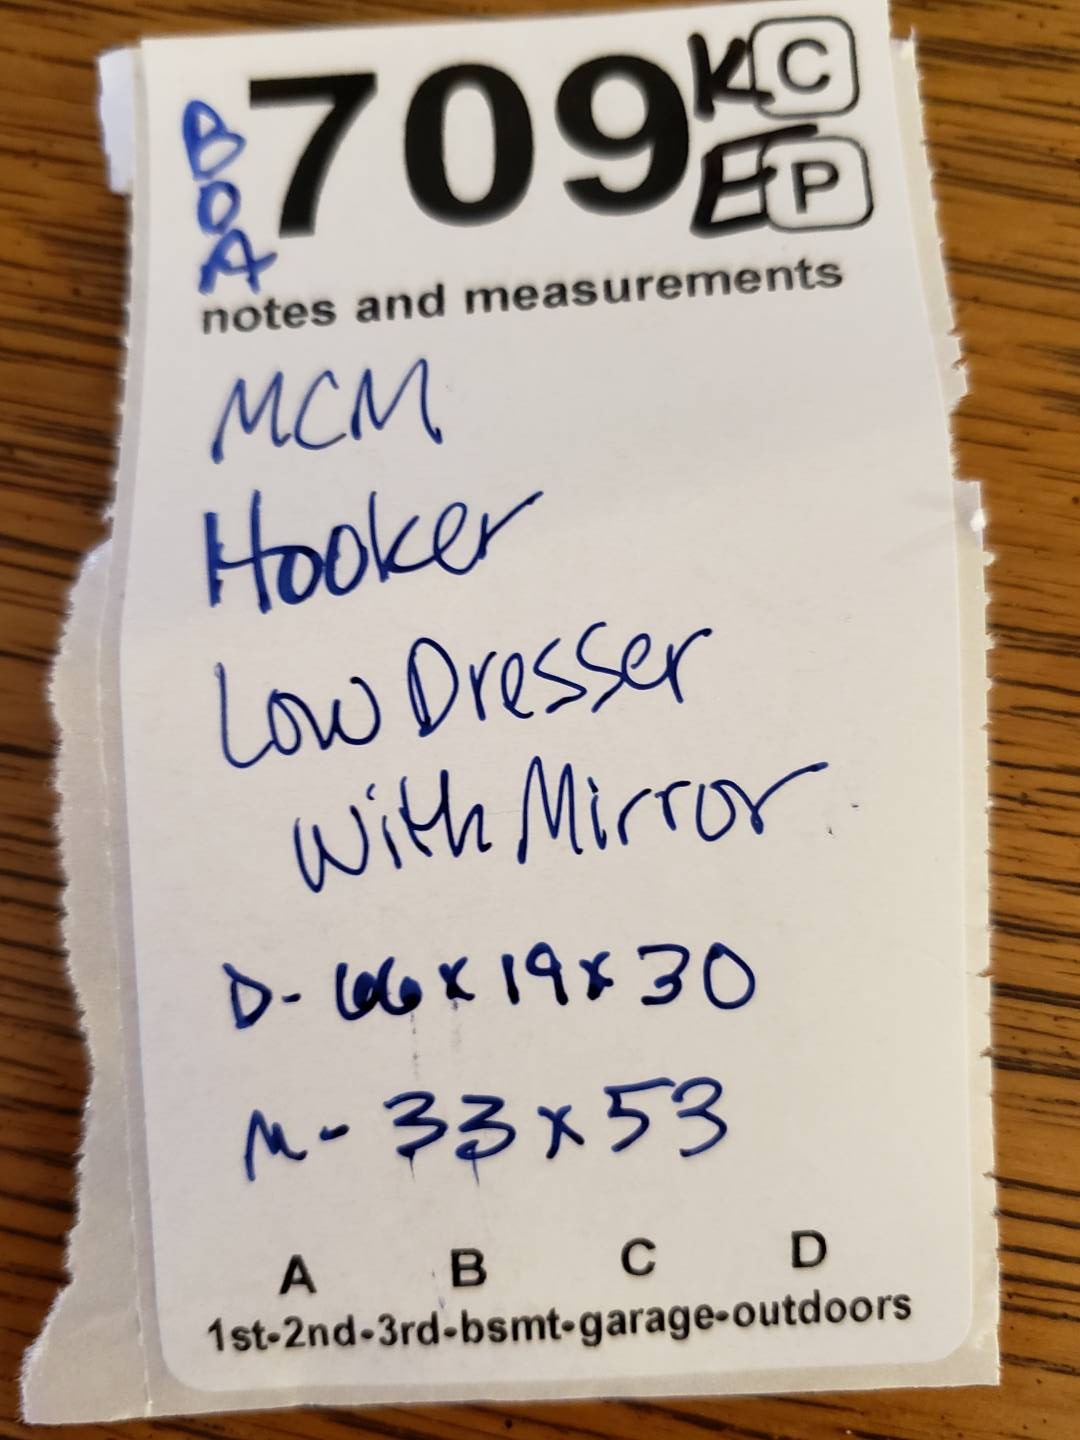 BDA
709
K C
E P
notes and measurements
MCM
Hooker
Low Dresser
With Mirror
D- 66 x 19 x 30
M- 33 x 53
A B C D
1st-2nd-3rd-bsmt-garage-outdoors